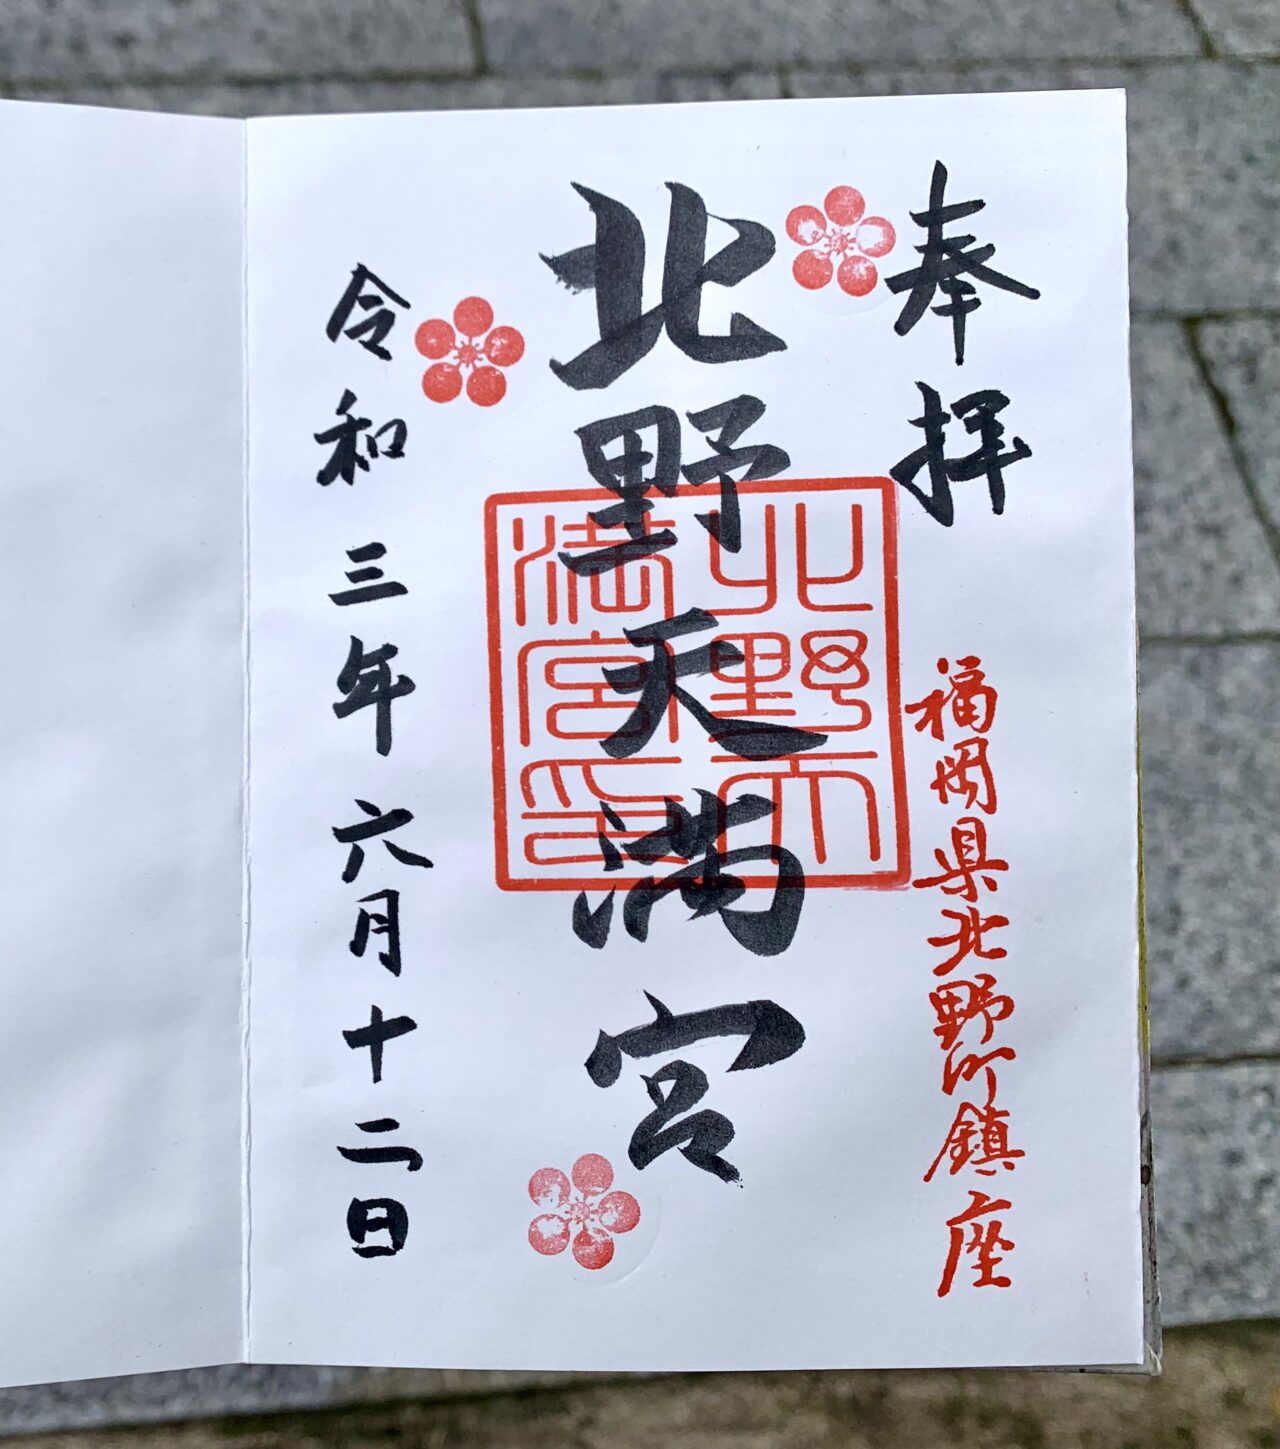 奉拝
福岡県北野町鎮座
北野天満宮
北野天
満宮印
令和三年六月十二日